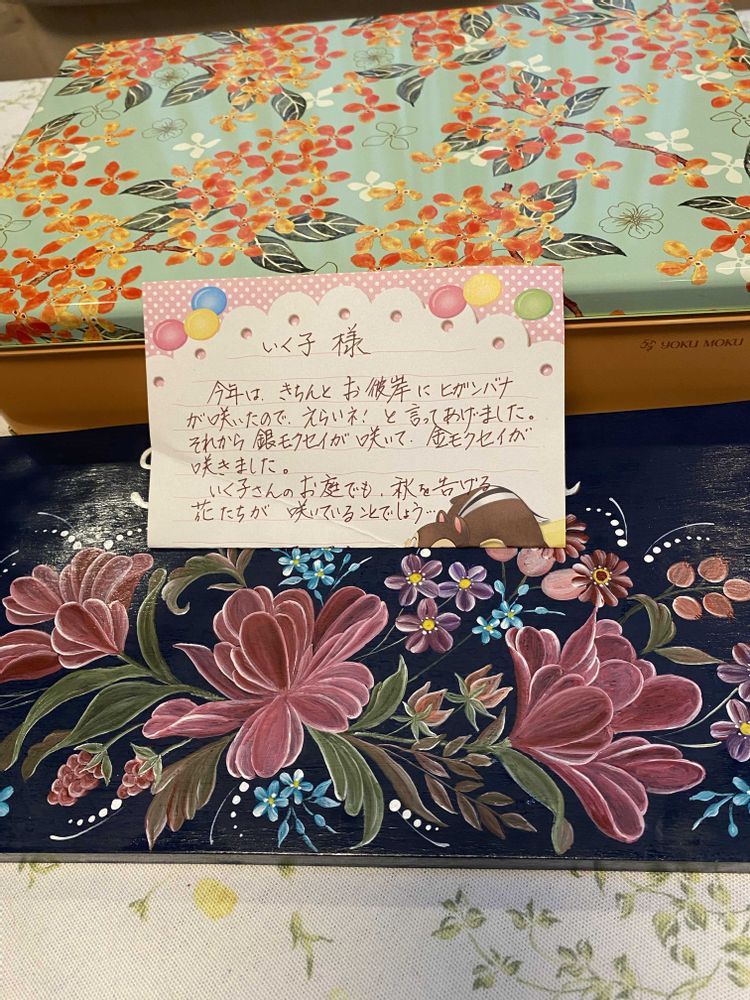 YOKU MOKU
いく子 様
今年は、きちんと お彼岸に ヒガンバナ
が咲いたので、えらいネ! と 言ってあげました。
それから 銀モクセイが 咲いて、金モクセイが
咲きました。
いく子さんの お庭でも、秋を告げる
花たちが 咲いていることでしょう…